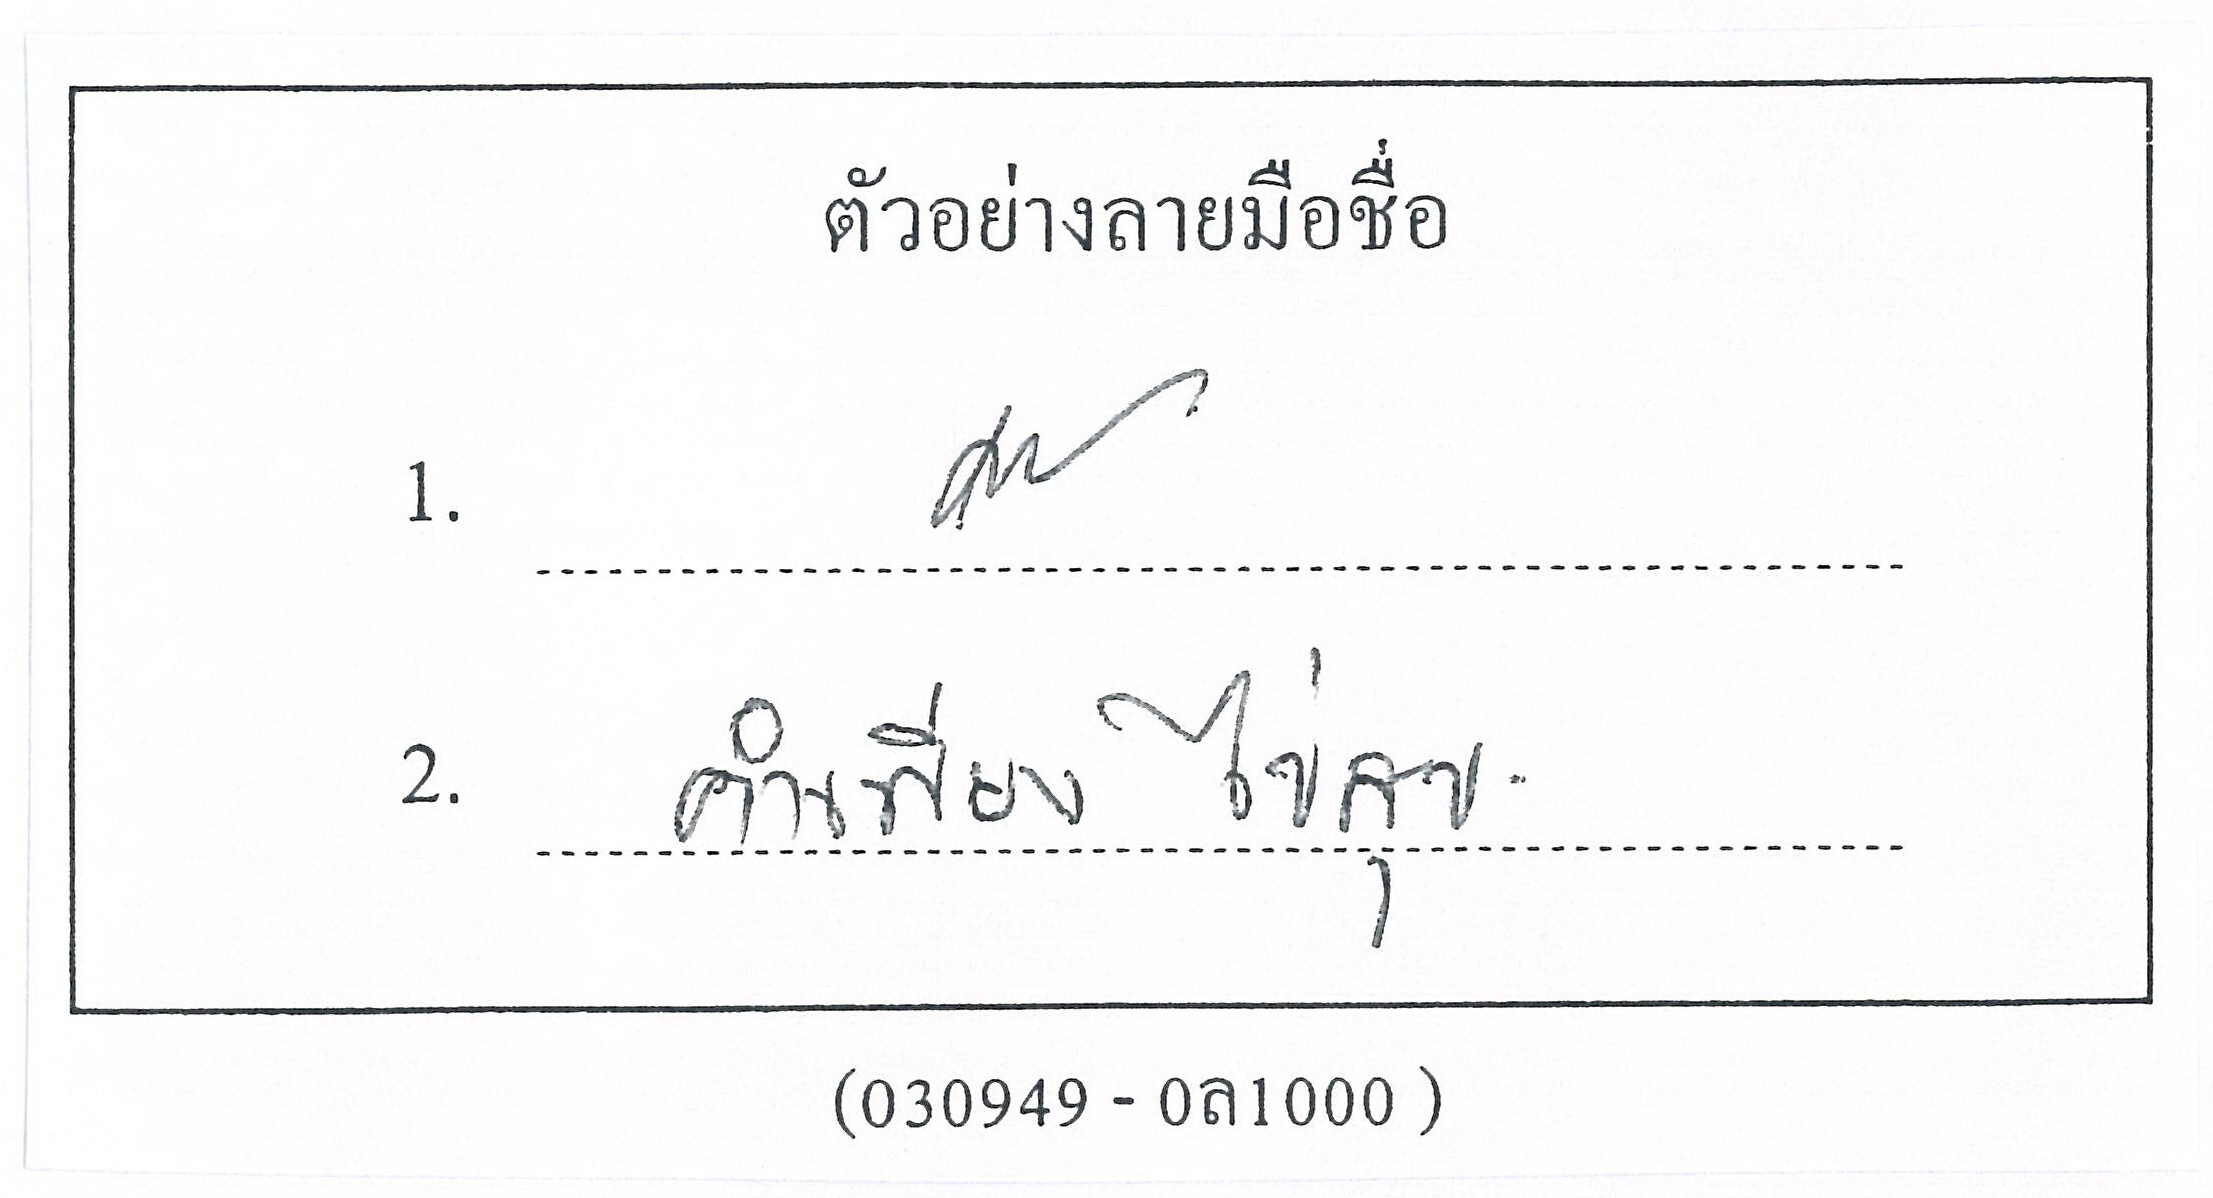 ตัวอย่างลายมือชื่อ
1.
2. คำเพียง ไข่สุข
(030949 - 0ล1000 )